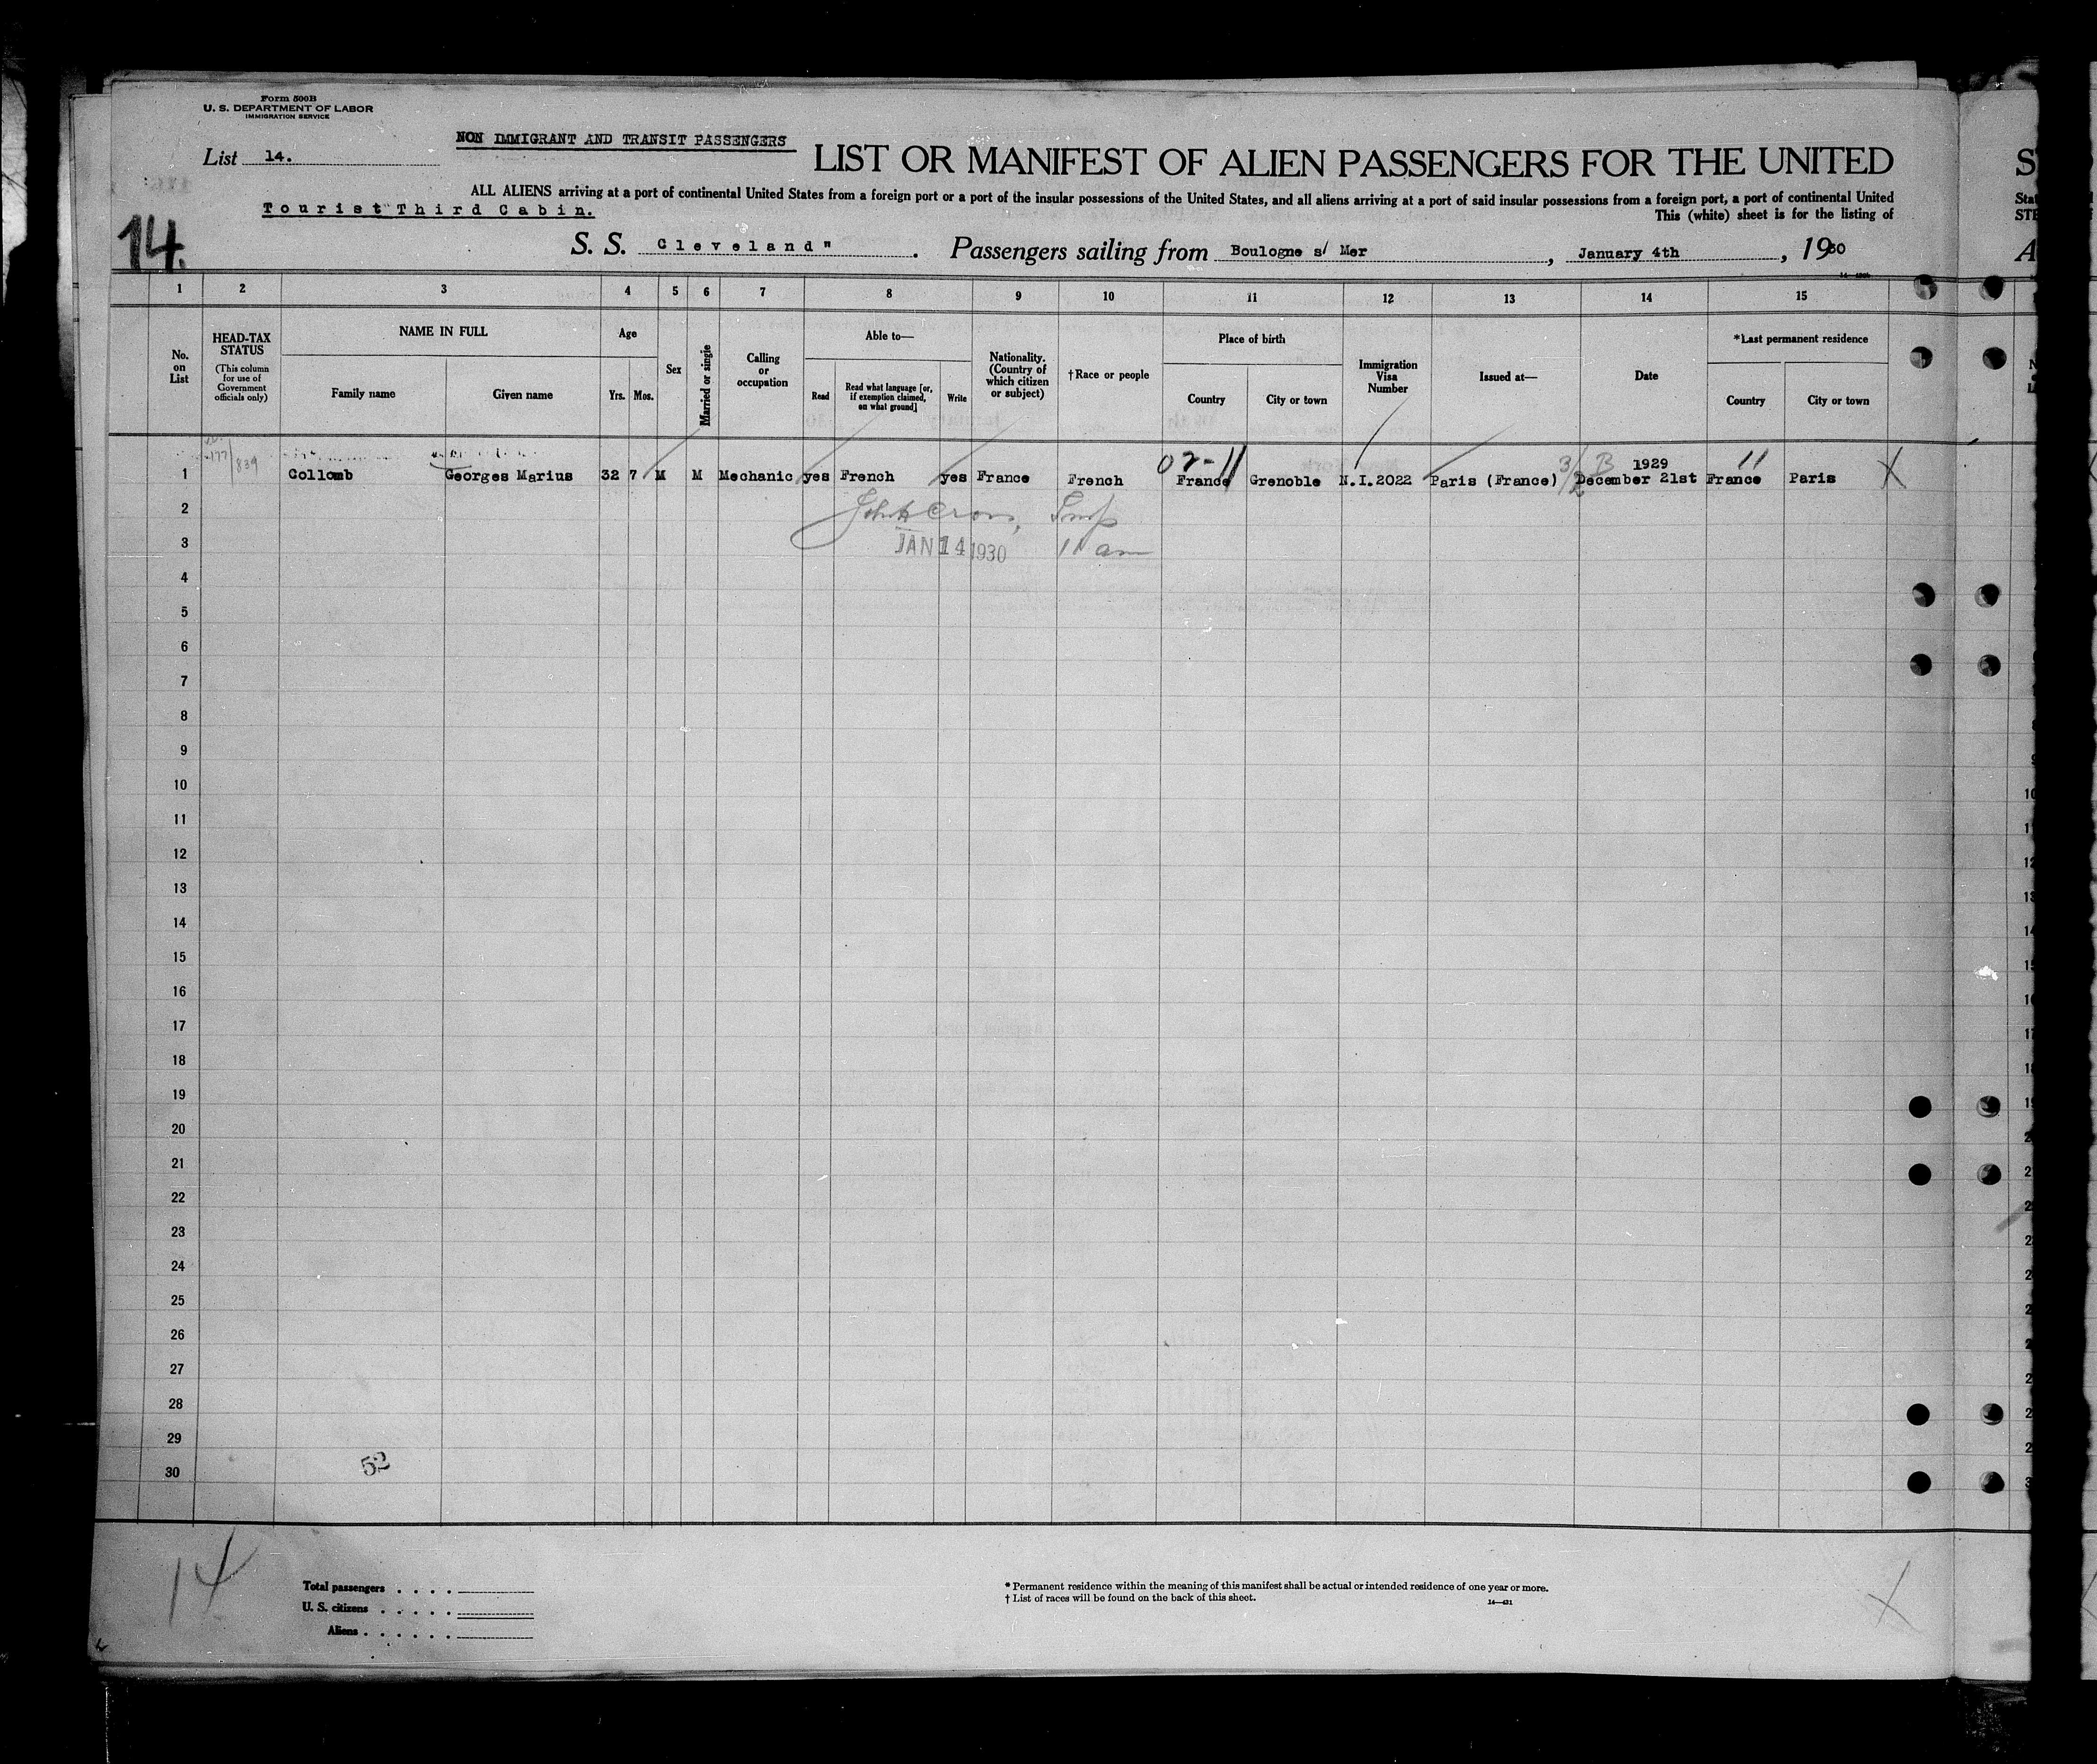 Form 500B
U. S. DEPARTMENT OF LABOR
IMMIGRATION SERVICE
NON IMMIGRANT AND TRANSIT PASSENGERS
List 14.
LIST OR MANIFEST OF ALIEN PASSENGERS FOR THE UNITED
ALL ALIENS arriving at a port of continental United States from a foreign port or a port of the insular possessions of the United States, and all aliens arriving at a port of said insular possessions from a foreign port, a port of continental United
Tourist Third Cabin.
This (white) sheet is for the listing of
14.
S. S. Cleveland" . Passengers sailing from Boulogne s/ Mer , January 4th , 1930
1 2 3 4 5 6 7 8 9 10 11 12 13 14 15
No. on List
HEAD-TAX STATUS (This column for use of Government officials only)
NAME IN FULL
Family name Given name
Age
Yrs. Mos.
Sex
Married or single
Calling or occupation
Able to—
Read Read what language [or, if exemption claimed, on what ground] Write
Nationality. (Country of which citizen or subject)
†Race or people
Place of birth
Country City or town
Immigration Visa Number
Issued at—
Date
*Last permanent residence
Country City or town
177/839
02-11
3/B
11
1929
1 Collomb Georges Marius 32 7 M M Mechanic yes French yes France French France Grenoble N.I.2022 Paris (France) December 21st France Paris X
2
3 JAN 14 1930 11 am
4
5
6
7
8
9
10
11
12
13
14
15
16
17
18
19
20
21
22
23
24
25
26
27
28
29
30
52
14
Total passengers . . . .
U. S. citizens . . . . .
Aliens . . . . . .
* Permanent residence within the meaning of this manifest shall be actual or intended residence of one year or more.
† List of races will be found on the back of this sheet.
14—421
X